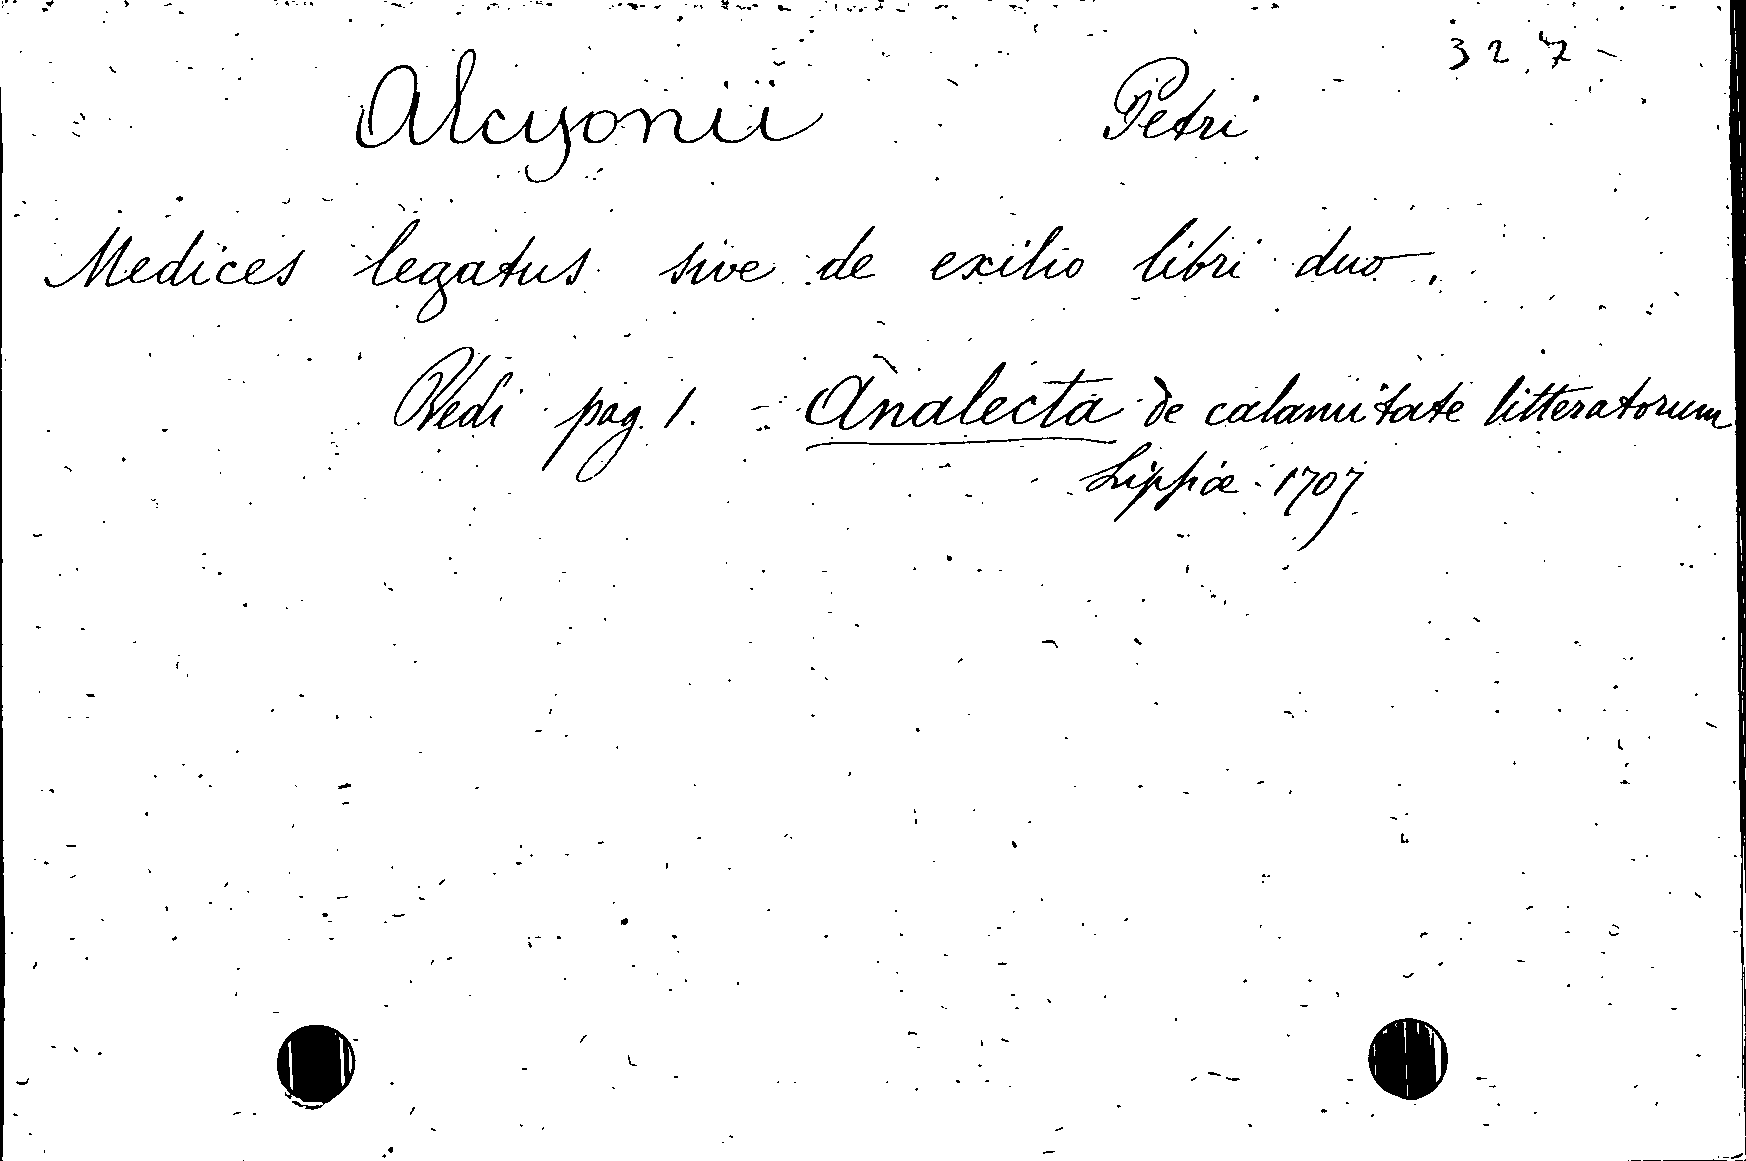 32.7
Alcyonii Petri
Medices legatus sive de exilio libri duo.
Vedi pag. 1. - Analecta de calamitate litteratorum
Lippiæ 1707